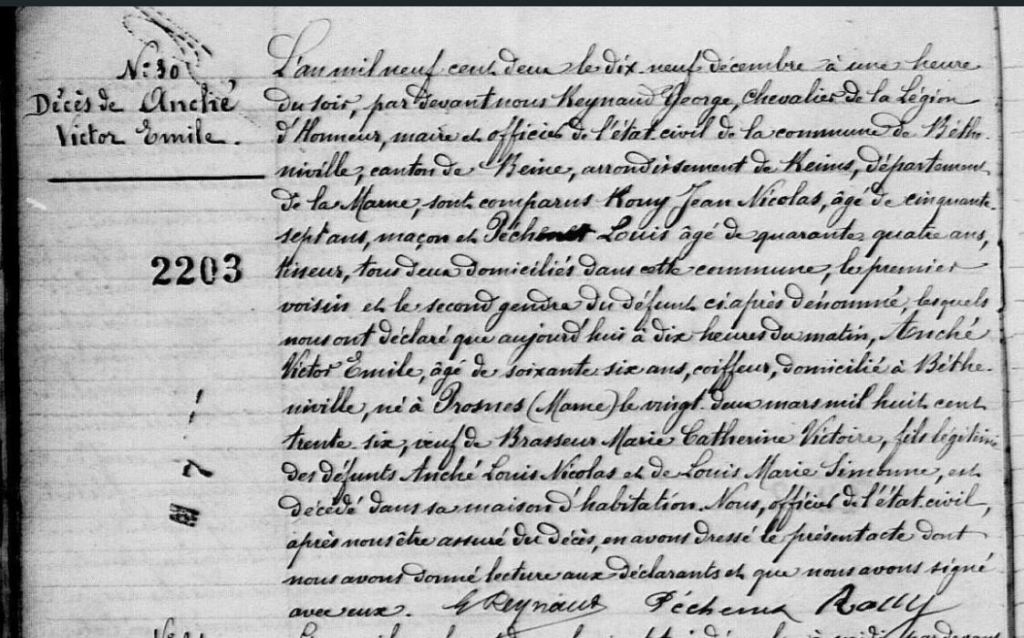 N° 30
Décès de Anché
Victor Emile.
2203
L'an mil neuf cent deux le dix neuf décembre à une heure
du soir, par devant nous Reynaud George, Chevalier de la Légion
d'Honneur, maire et officier de l'état civil de la commune de Béthe-
niville, canton de Beine, arrondissement de Reims, département
de la Marne, sont comparus Rouy Jean Nicolas, âgé de cinquante-
sept ans, maçon et Péchenet Louis âgé de quarante quatre ans,
tisseur, tous deux domiciliés dans cette commune, le premier
voisin et le second gendre du défunt ci après dénommé, lesquels
nous ont déclaré que aujourd'hui à dix heures du matin, Anché
Victor Emile, âgé de soixante six ans, coiffeur, domicilié à Béthe-
niville, né à Prosnes (Marne) le vingt deux mars mil huit cent
trente six, veuf de Brasseur Marie Catherine Victoire, fils légitime
des défunts Anché Louis Nicolas et de Louis Marie Simonne, est
décédé dans sa maison d'habitation. Nous, officier de l'état civil,
après nous être assuré du décès, en avons dressé le présent acte dont
nous avons donné lecture aux déclarants et que nous avons signé
avec eux. G Reynaud Péchenet Rouy